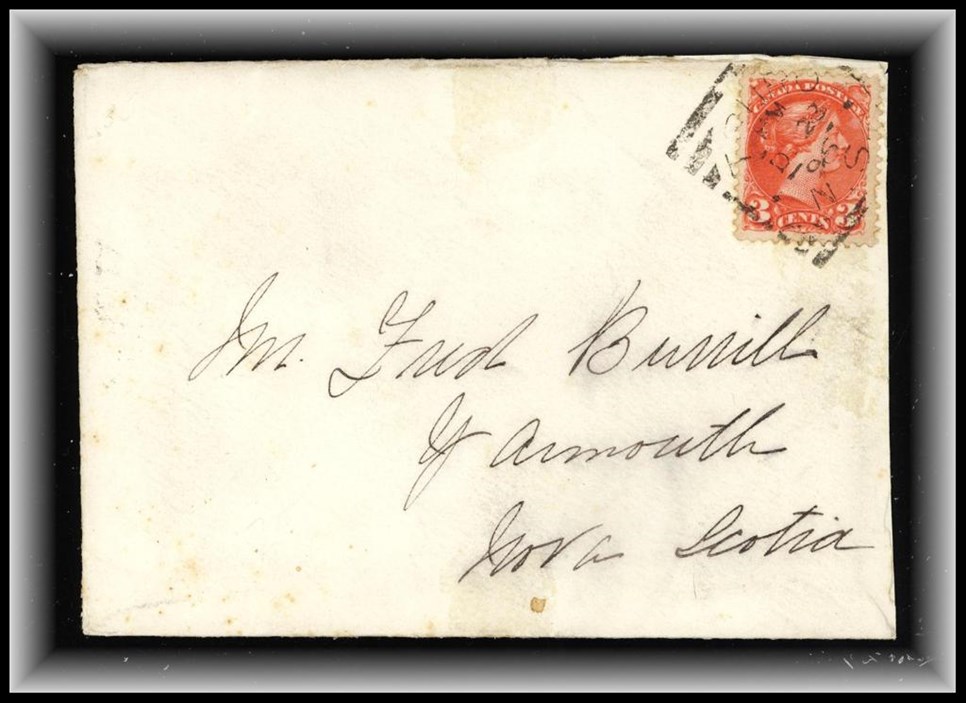 CANADA POSTAGE
3 CENTS 3
N S
Mr. Fred Burrill
Yarmouth
Nova Scotia